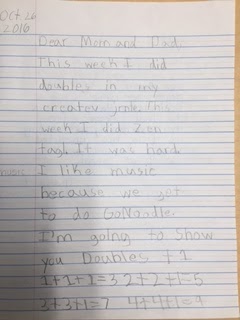 Oct 26
2016
Dear Mom and Dad,
This week I did
doubles in my
creater jrnle. This
week I did Zon
tag. It was hard
music I like music
because we get
to do GoNoodle.
I'm going to show
you Doubles + 1
1+1+1=3 2+2+1=5
3+3+1=7 4+4+1=9